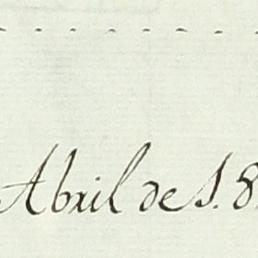 Abril de 1.8